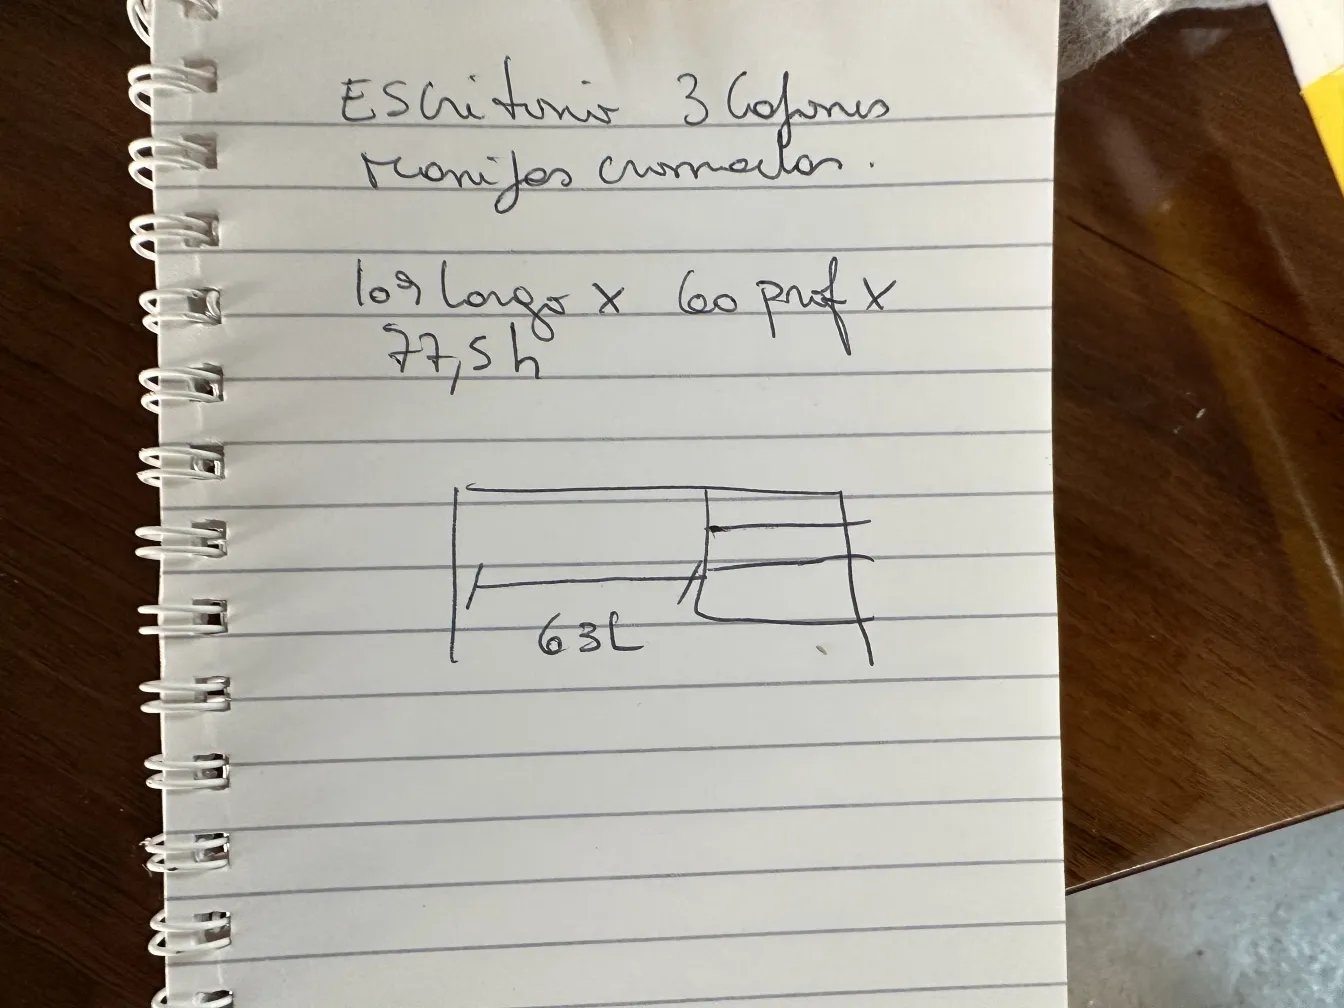 Escritorio 3 Cajones
Manijas cromadas.
109 largo x 60 prof x
77,5 h
63L